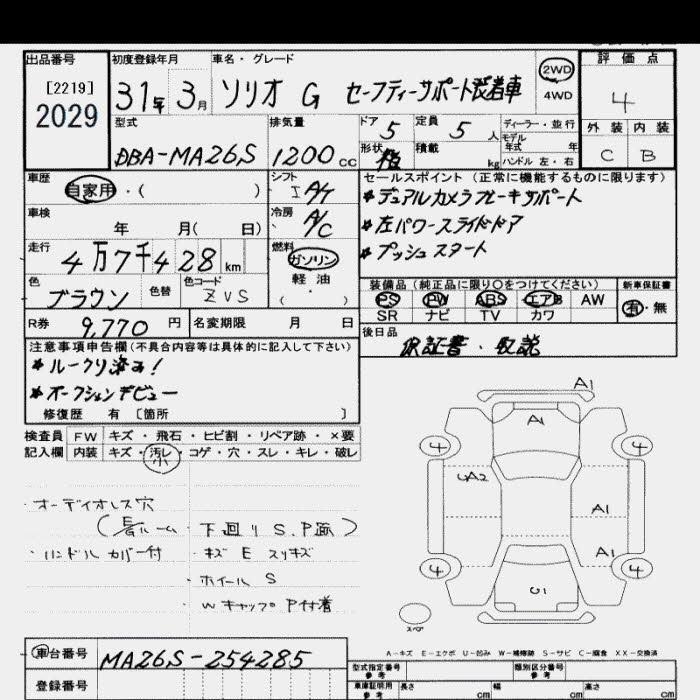 出品番号
[2219]
2029
初度登録年月
31年 3月
車名・グレード
ソリオ G セーフティーサポート装着車
2WD
4WD
評価点
4
外装 内装
C B
型式
DBA-MA26S
排気量
1200cc
ドア 5
形状
定員 5人
積載 kg
ディーラー・並行
モデル年式 年
ハンドル 左・右
車歴
自家用・( )
シフト
I A/T
車検
年 月( 日)
冷房
A/C
走行
4万7千428km
燃料
ガソリン
軽油
( )
色
ブラウン
色替
色コード
ZVS
R券
9,770円
名変期限 月 日
セールスポイント(正常に機能するものに限ります)
*デュアルカメラブレーキサポート
*左パワースライドドア
*プッシュスタート
装備品(純正品に限り○をつけてください)
PS PW ABS エアB AW
SR ナビ TV カワ
新車保証書
有・無
後日品
保証書・取説
注意事項申告欄(不具合内容等は具体的に記入して下さい)
*ルークリ済み!
*オークションデビュー
修復歴 有 〔箇所 〕
検査員記入欄
FW キズ・飛石・ヒビ割・リペア跡・×要
内装 キズ・汚レ・コゲ・穴・スレ・キレ・破レ
小
・オーディオレス穴
・ハンドルカバー付
・下廻り S.P面
・キズ E スリキズ
・ホイール S
・Wキャップ P付着
A1
A1
4 4
UA2
A1
A1
4 4
U1
スペア
A-キズ E-エクボ U-凹み W-補修跡 S-サビ C-腐食 XX-交換済
車台番号
MA26S-254285
登録番号
型式指定番号 参考
類別区分番号 参考
車庫証明用 参考
長さ cm 幅 cm 高さ cm